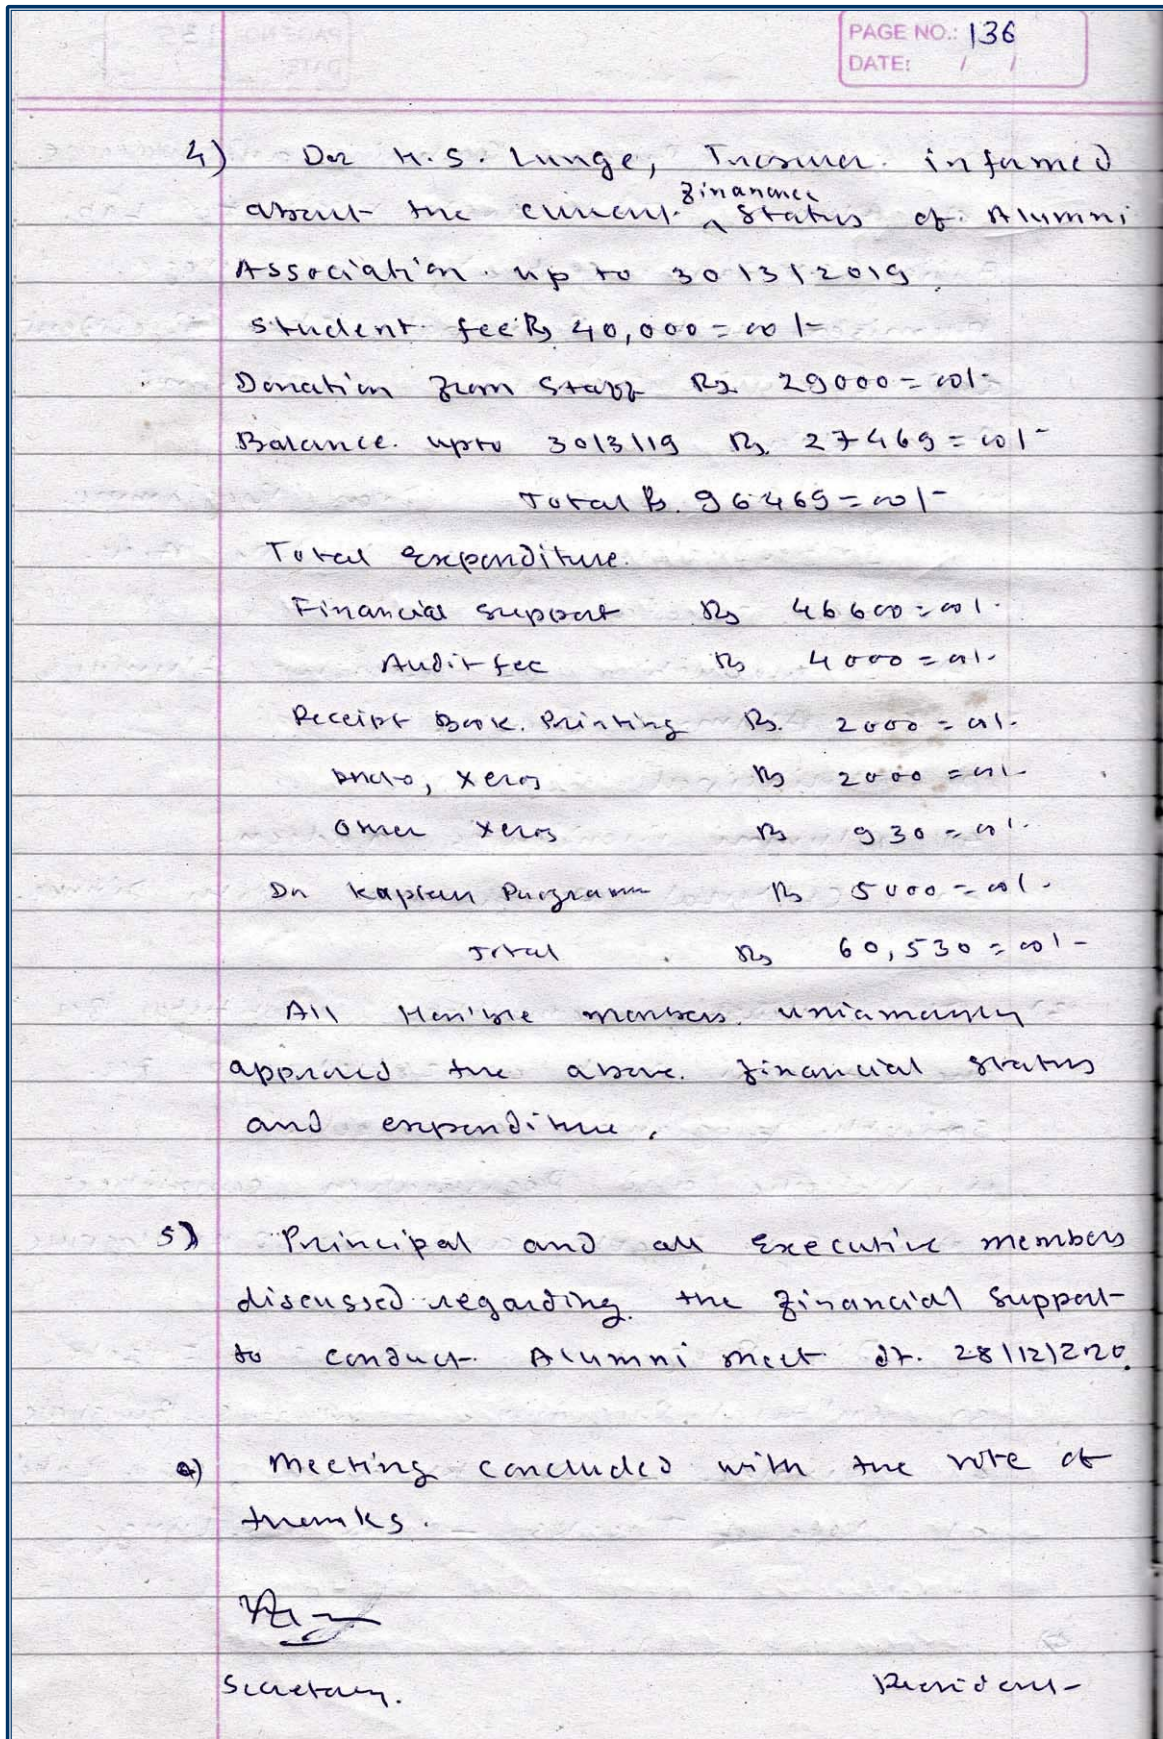 PAGE NO.: 136
DATE: / /
4) Dr H.S. Lunge, Tresurer informed
about the current finanance status of Alumni
Association up to 30/3/2019.
student fee Rs 40,000=00/-
Donation from Staff Rs. 29000=00/-
Balance upto 30/3/19 Rs. 27469=00/-
Total Rs. 96469=00/-
Total Expenditure.
Financial support Rs 46600=00/-
Audit fee Rs 4000=00/-
Receipt Book Printing Rs. 2000=00/-
Xerox Rs 2000=00/-
Other Xerox Rs 930=00/-
Dr Kaplan Rs 5000=00/-
Total Rs 60,530=00/-
All Hon'ble members
approved the above financial status
and expenditure.
5) Principal and all Executive members
discussed regarding the financial support
to conduct Alumni meet dt. 28/12/2020.
Meeting concluded with the vote of
thanks.
Secretary.
President